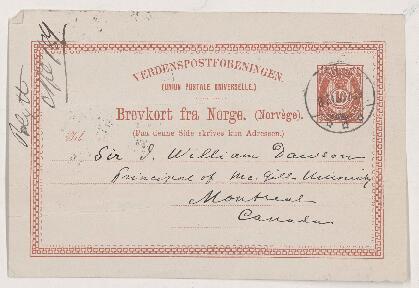 VERDENSPOSTFORENINGEN.
(UNION POSTALE UNIVERSELLE.)
Brevkort fra Norge. (Norvège).
(Paa denne Side skrives kun Adressen.)
Til
Sir J. William Dawson
Principal of McGill University
Montreal
Canada
10